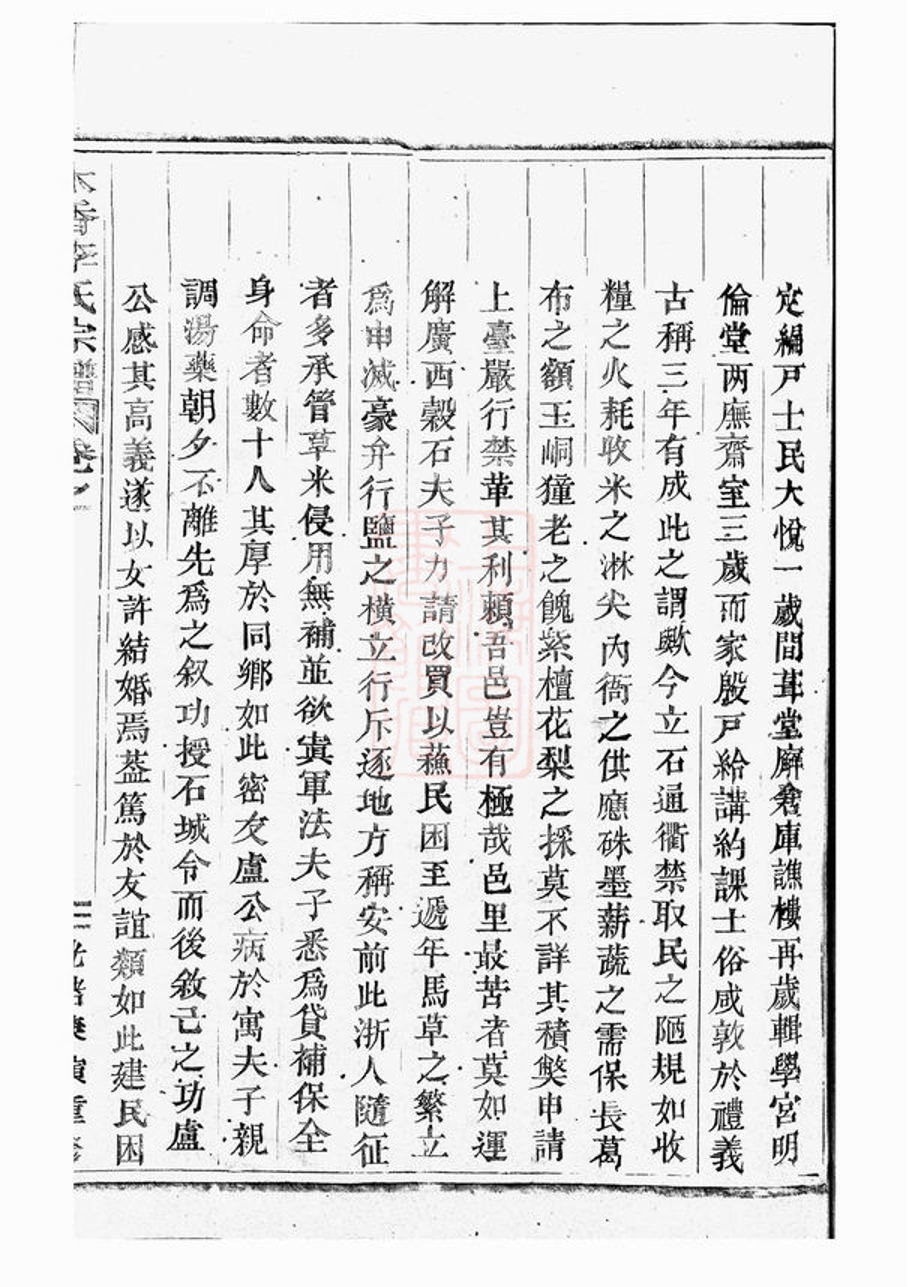 定編戸士民大悅一歲間葺堂廨龕庫譙樓再歲輯學宮明
倫堂两廡齋室三歲而家殷戸給講約課士俗咸敦於禮義
古稱三年有成此之謂歟今立石通衢禁取民之陋規如收
糧之火耗收米之淋尖內衙之供應硃墨薪蔬之需保長葛
布之額玉峒獞老之餽紫檀花梨之採莫不詳其積獘申請
上臺嚴行禁革其利賴吾邑豈有極哉邑里最苦者莫如運
解廣西穀石夫子力請改買以蘓民困至遞年馬草之繁立
爲申減豪弁行鹽之橫立行斥逐地方稱安前此浙人隨征
者多承管草米侵用無補並欲寘軍法夫子悉爲貸補保全
身命者數十人其厚於同鄉如此密友盧公病於寓夫子親
調湯藥朝夕不離先爲之叙功授石城令而後敘己之功盧
公感其高義遂以女許結婚焉葢篤於友誼類如此建民困
香李氏宗譜 卷之
光緒 重修